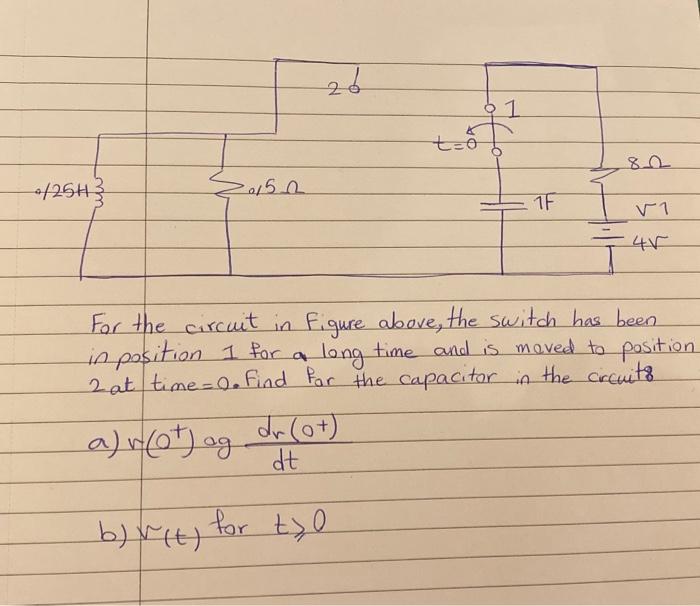 2
1
t=0
8Ω
0/25H
0/5Ω
1F
V1
4V
For the circuit in Figure above, the switch has been
in position 1 for a long time and is moved to position
2 at time=0. Find for the capacitor in the circuit:
a) v(0+) ag dv(0+)
dt
b) v(t) for t≥0